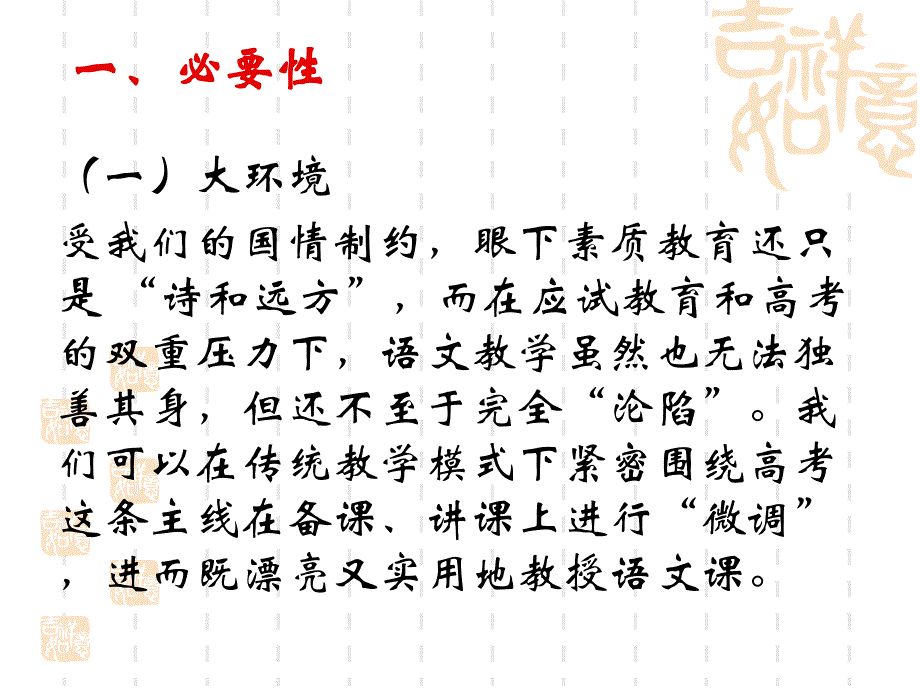 吉祥如意
一、必要性
（一）大环境
受我们的国情制约，眼下素质教育还只
是“诗和远方”，而在应试教育和高考
的双重压力下，语文教学虽然也无法独
善其身，但还不至于完全“沦陷”。我
们可以在传统教学模式下紧密围绕高考
这条主线在备课、讲课上进行“微调”
，进而既漂亮又实用地教授语文课。
如意
吉祥如意
如意
吉祥如意
如意
吉祥如意